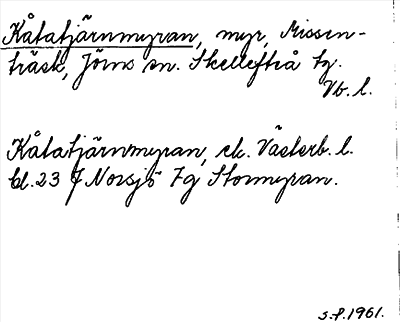 Kåtatjärnmyran, myr, Missen-
träsk, Jörns sn. Skellefteå tg.
Vb. l.
Kåtatjärnmyran, ek. Västerb. l.
bl. 23 J Norsjö 7g Stormyran.
S.P. 1961.